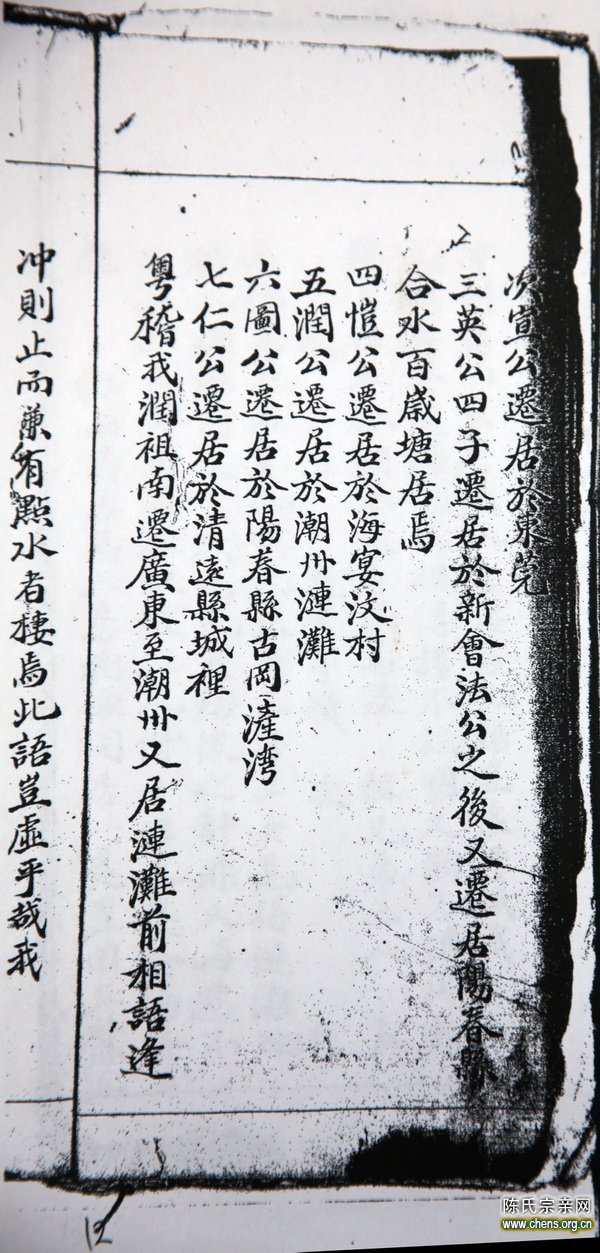 次宣公遷居於東莞
三英公四子遷居於新會法公之後又遷居陽春縣
合水百歲塘居焉
四愷公遷居於海宴汶村
五潤公遷居於潮州漣灘
六圖公遷居於陽春縣古岡㵐湾
七仁公遷居於清遠縣城裡
粵稽我潤祖南遷廣東至潮州又居漣灘前相語逢
冲則止而兼有點水者棲焉此語豈虛乎哉我
12
陈氏宗亲网
www.chens.org.cn